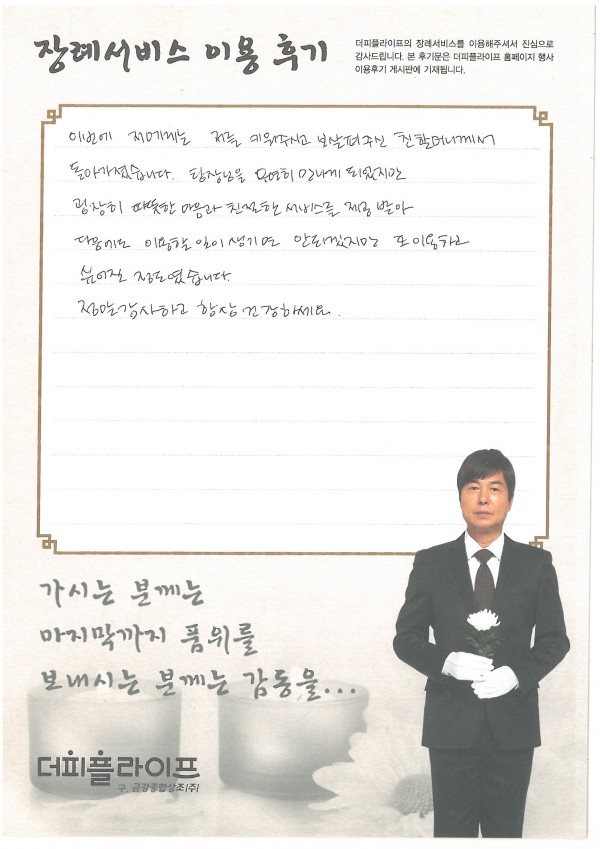 장례서비스 이용 후기
더피플라이프의 장례서비스를 이용해주셔서 진심으로
감사드립니다. 본 후기문은 더피플라이프 홈페이지 행사
이용후기 게시판에 기재됩니다.
이번에 저에게는 저를 키워주시고 보살펴주신 친할머니께서
돌아가셨습니다. 팀장님을 우연히 만나게 되었지만
굉장히 따뜻한 마음과 친절한 서비스를 제공 받아
다음에도 이용할 일이 생기면 안되겠지만 또 이용하고
싶어질 정도였습니다.
정말 감사하고 항상 건강하세요.
가시는 분께는
마지막까지 품위를
보내시는 분께는 감동을...
더피플라이프
구. 금강종합상조(주)